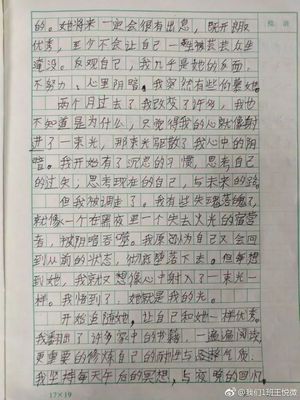 的。她将来一定会很有出息,既开朗
优秀,至少不会让自己一
淹没。反观自己,我几乎是她的反面,
不努力、心里阴暗。我突然有些仰慕她。
两个月过去了我改变了许多,我也
不知道是为什么,只觉得我的心就像射
进了一束光,那束光驱散了我心中的阴
暗。我开始有了沉思的习惯,思考自己
的过失,思考现在的自己,与未来的路。
但我被调走了。我有些失魂落魄了,
就像一个在黑夜里一个失去火光的宿营
者,被阴暗吞噬。我原以为自己又会回
到从前的状态,彻底堕落下去。但每想
到她,我就又想像心中射入了一束光一
样。我悟到了,她就是我的光。
开始追随她,让自己和她一样优秀。
我翻出了许多家中的书籍,一遍遍阅读,
更重要的修炼自己的耐性与
我坚持每天午后的冥想,与夜晚的回忆。
17×19
@我们1班王悦微